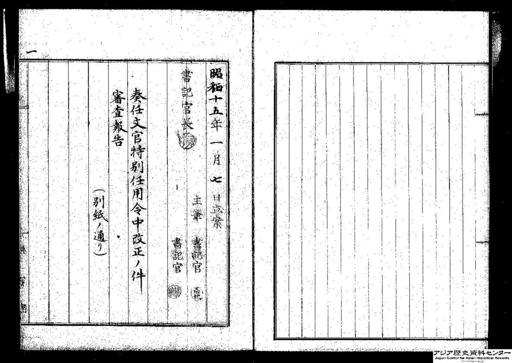 昭和十五年一月七日立案
書記官長
主筆 書記官
書記官
奏任文官特別任用令中改正ノ件
審査報告
(別紙ノ通リ)
一
アジア歴史資料センター
Japan Center for Asian Historical Records